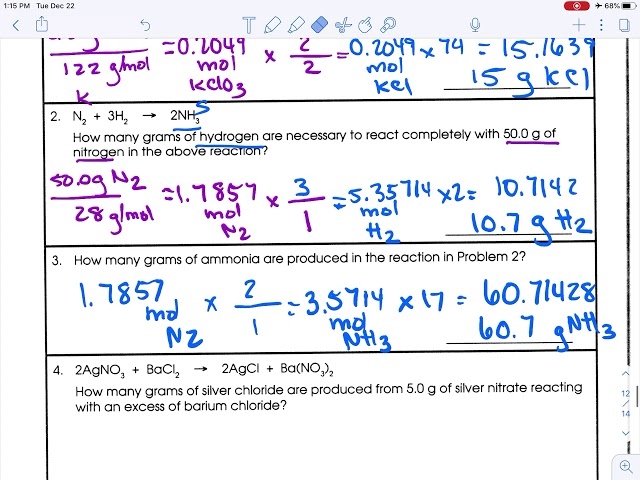 1:15 PM Tue Dec 22
68%
122 g/mol
=0.2049 mol KClO3 x 2/2 =0.2049 x 74 = 15.1639
mol KCl
K
15 g KCl
2. N₂ + 3H₂ → 2NH₃
How many grams of hydrogen are necessary to react completely with 50.0 g of
nitrogen in the above reaction?
50.0g N2 / 28 g/mol =1.7857 mol N2 x 3/1 =5.35714 x2= 10.7142
mol H2
10.7 g H2
3. How many grams of ammonia are produced in the reaction in Problem 2?
1.7857 mol N2 x 2/1 =3.5714 x 17 = 60.71428
mol NH3
60.7 g NH3
4. 2AgNO₃ + BaCl₂ → 2AgCl + Ba(NO₃)₂
How many grams of silver chloride are produced from 5.0 g of silver nitrate reacting
with an excess of barium chloride?
12
14